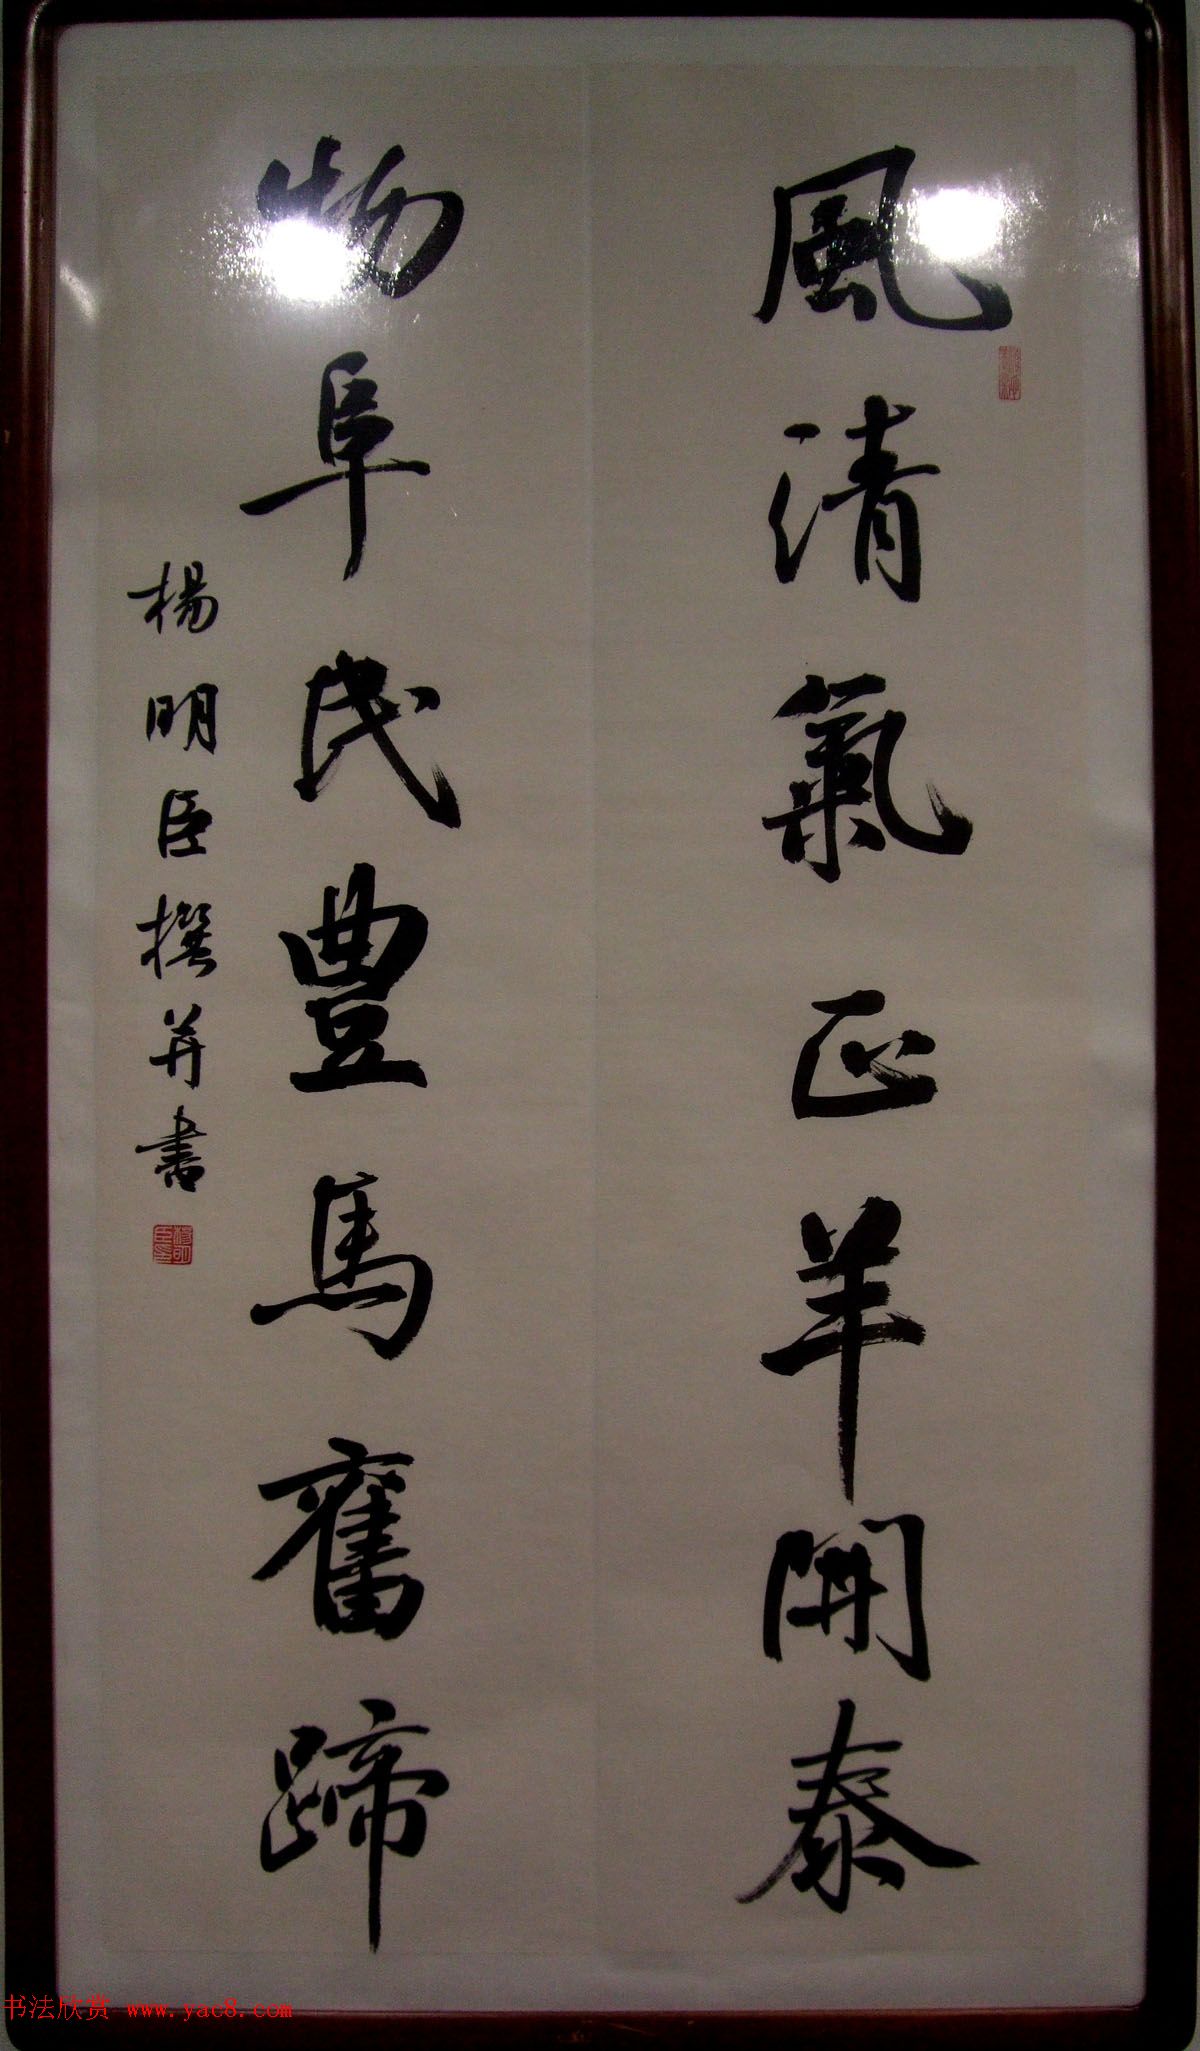 風清氣正羊開泰
物阜民豊馬奮蹄
楊明臣撰并書
书法欣赏 www.yac8.com